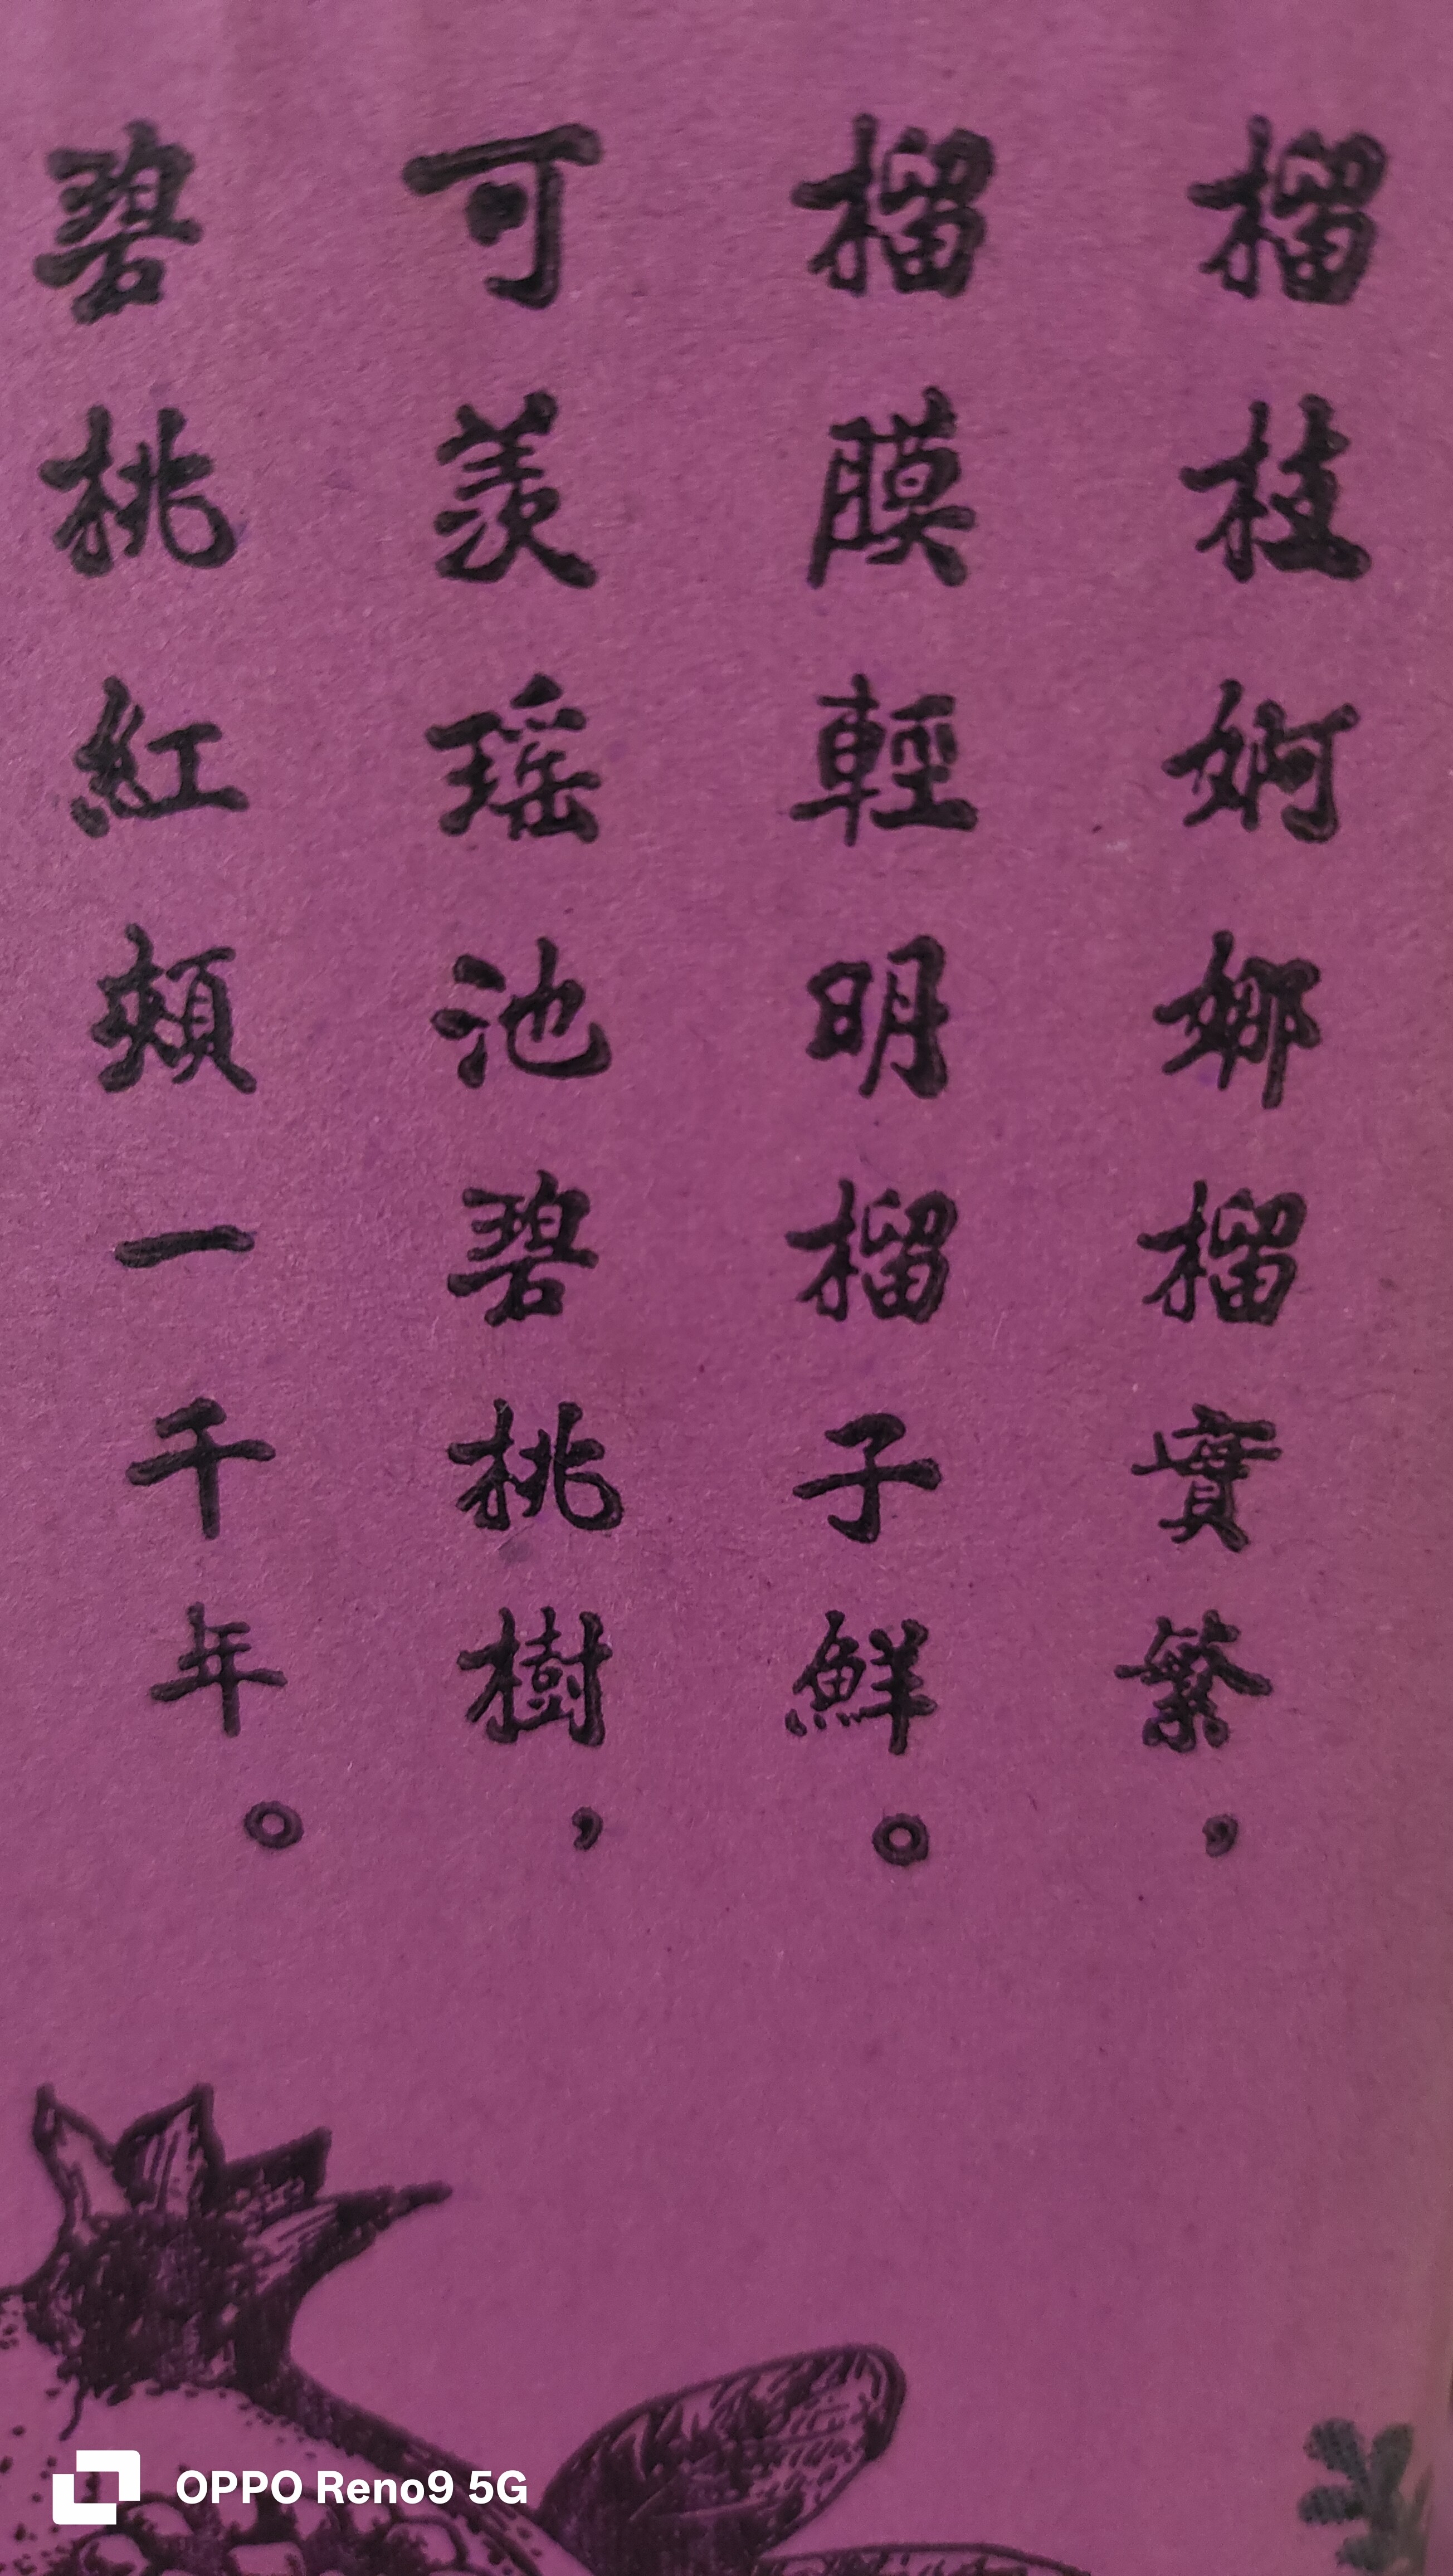 榴枝婀娜榴實繁，
榴膜輕明榴子鮮。
可羨瑶池碧桃樹，
碧桃紅頰一千年。
OPPO Reno9 5G